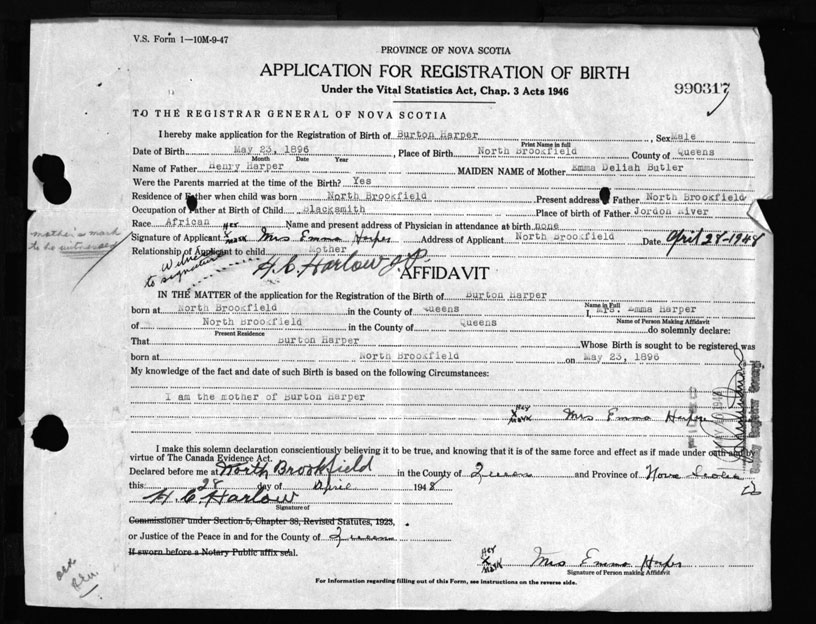 V.S. Form 1—10M-9-47
PROVINCE OF NOVA SCOTIA
APPLICATION FOR REGISTRATION OF BIRTH
Under the Vital Statistics Act, Chap. 3 Acts 1946
990317
TO THE REGISTRAR GENERAL OF NOVA SCOTIA
I hereby make application for the Registration of Birth of Burton Harper, Sex Male
Print Name in full
Date of Birth May 23, 1896, Place of Birth North Brookfield County of Queens
Month Date Year
Name of Father Henry Harper MAIDEN NAME of Mother Emma Deliah Butler
Were the Parents married at the time of the Birth? Yes
Residence of Father when child was born North Brookfield Present address Father North Brookfield
Occupation of Father at Birth of Child Blacksmith Place of birth of Father Jordon River
Race African Name and present address of Physician in attendance at birth none
mother's mark
to be witnessed
Her
Signature of Applicant X Mrs Emma Harper Address of Applicant North Brookfield Date April 28-1948
mark
Relationship of Applicant to child Mother
Witness
to signature H.C. Harlow J.P.
AFFIDAVIT
IN THE MATTER of the application for the Registration of the Birth of Burton Harper
Name in Full
born at North Brookfield in the County of Queens I, Mrs. Emma Harper
Name of Person Making Affidavit
of North Brookfield in the County of Queens do solemnly declare:
Present Residence
That Burton Harper Whose Birth is sought to be registered was
born at North Brookfield on May 23, 1896
My knowledge of the fact and date of such Birth is based on the following Circumstances:
I am the mother of Burton Harper
Her
X Mrs Emma Harper
Mark
I make this solemn declaration conscientiously believing it to be true, and knowing that it is of the same force and effect as if made under oath and by
virtue of The Canada Evidence Act.
Declared before me at North Brookfield in the County of Queens and Province of Nova Scotia
this 28 day of April 1948
H.C. Harlow
Signature of
Commissioner under Section 5, Chapter 38, Revised Statutes, 1923,
or Justice of the Peace in and for the County of Queens
If sworn before a Notary Public affix seal.
Her
X Mrs Emma Harper
Mark
Signature of Person making Affidavit
For Information regarding filling out of this Form, see instructions on the reverse side.